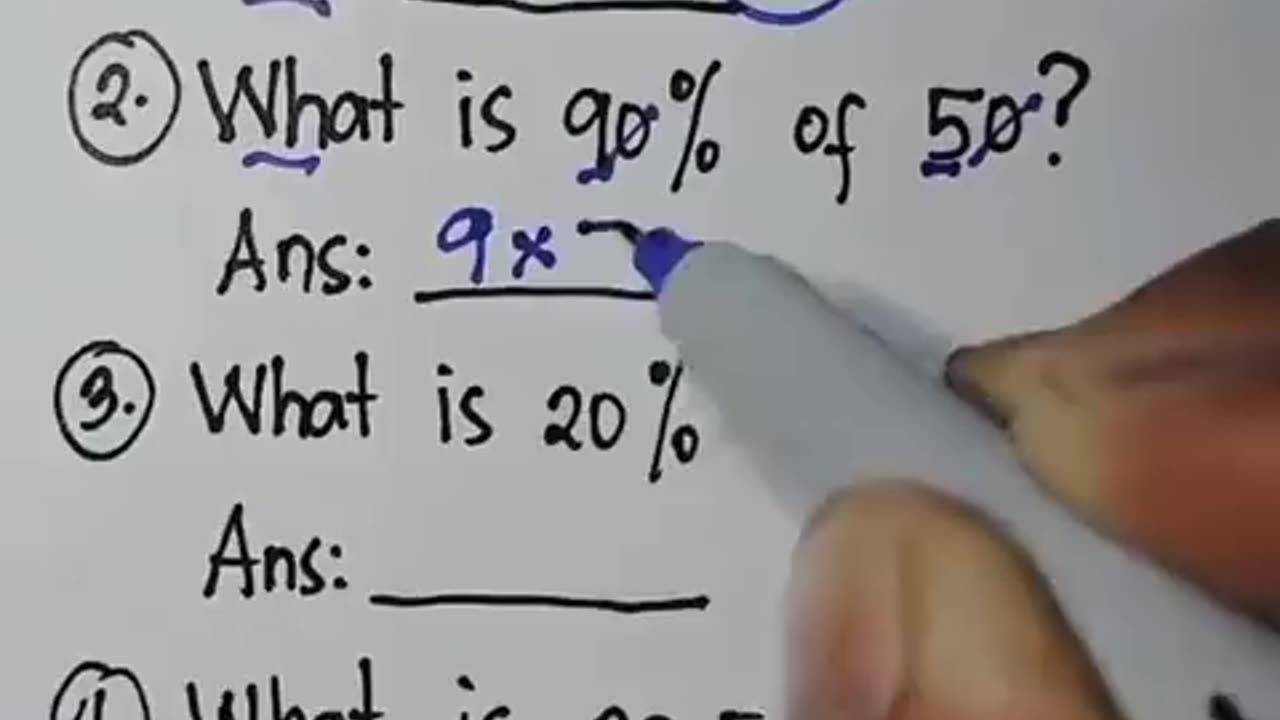 2. What is 90% of 50?
Ans: 9x
3. What is 20%
Ans:
What is